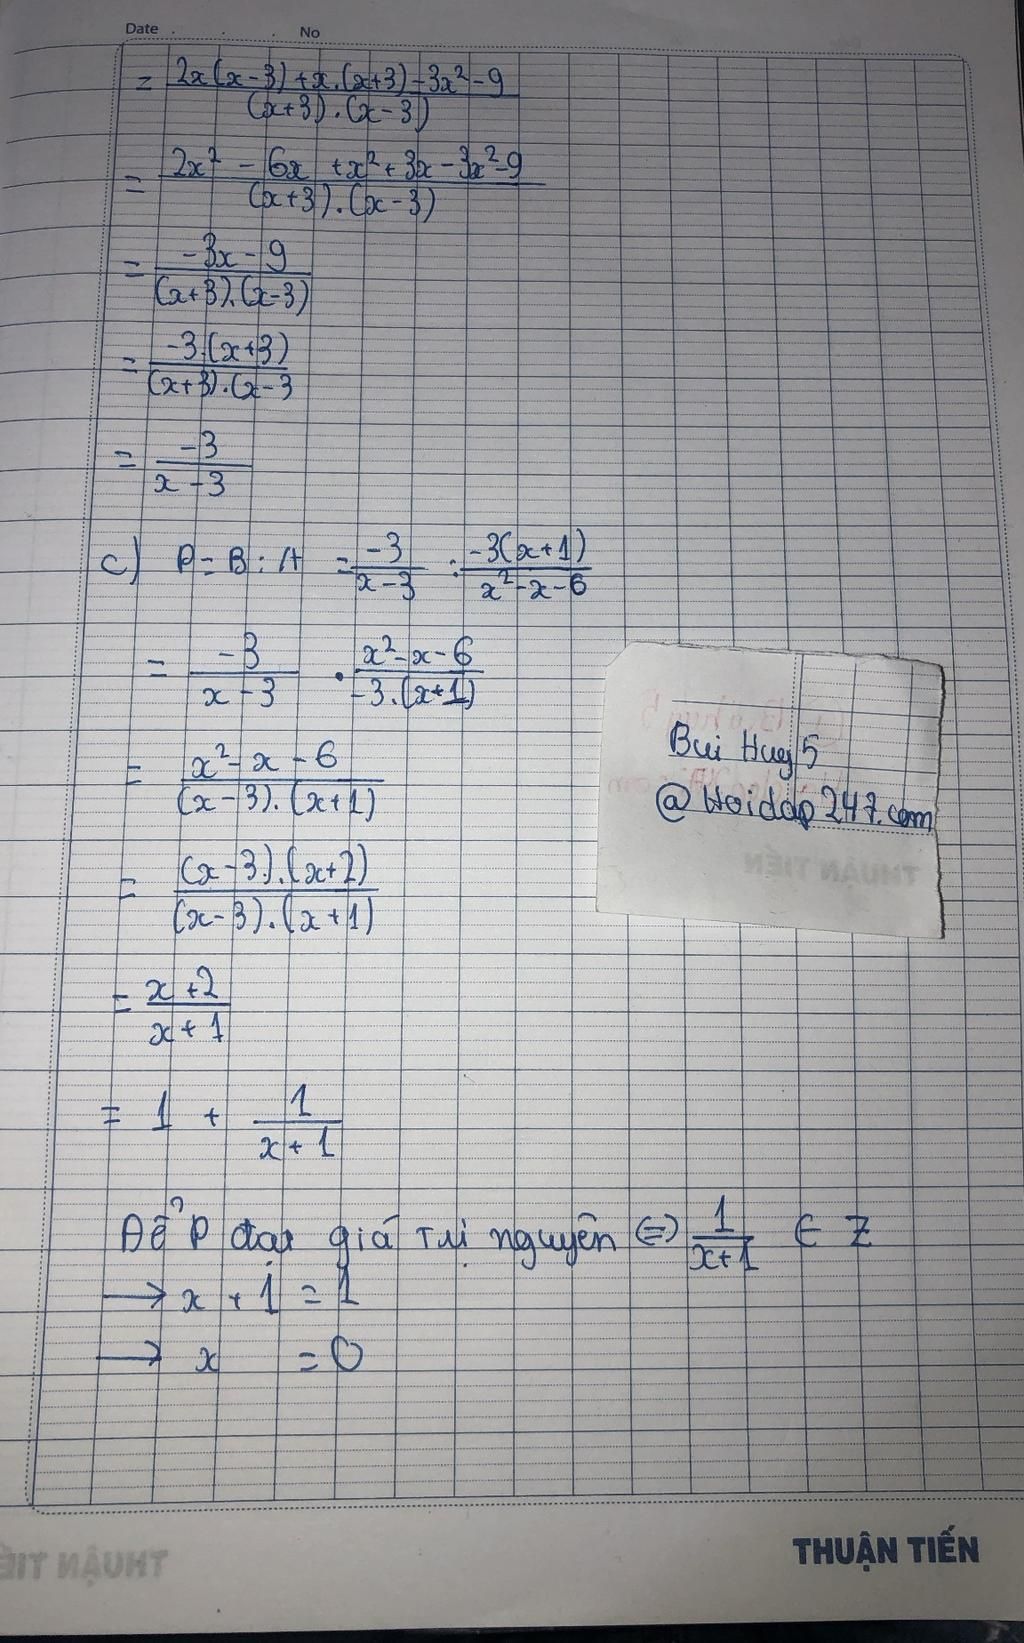 Date . . . No
= 2x(x-3)+x.(x+3)-3x²-9 / (x+3).(x-3)
= 2x² - 6x +x²+3x-3x²-9 / (x+3).(x-3)
= -3x-9 / (x+3).(x-3)
= -3.(x+3) / (x+3).(x-3
= -3 / x-3
c) P = B : A = -3 / x-3 : -3(x+1) / x²-x-6
= -3 / x-3 . x²-x-6 / -3.(x+1)
= x²-x-6 / (x-3).(x+1)
= (x-3).(x+2) / (x-3).(x+1)
= x+2 / x+1
= 1 + 1 / x+1
Để P đạt giá trị nguyên <=> 1 / x+1 ∈ Z
→ x + 1 = 1
→ x = 0
Bui Huy 5
@Hoidap247.com
THUẬN TIẾN